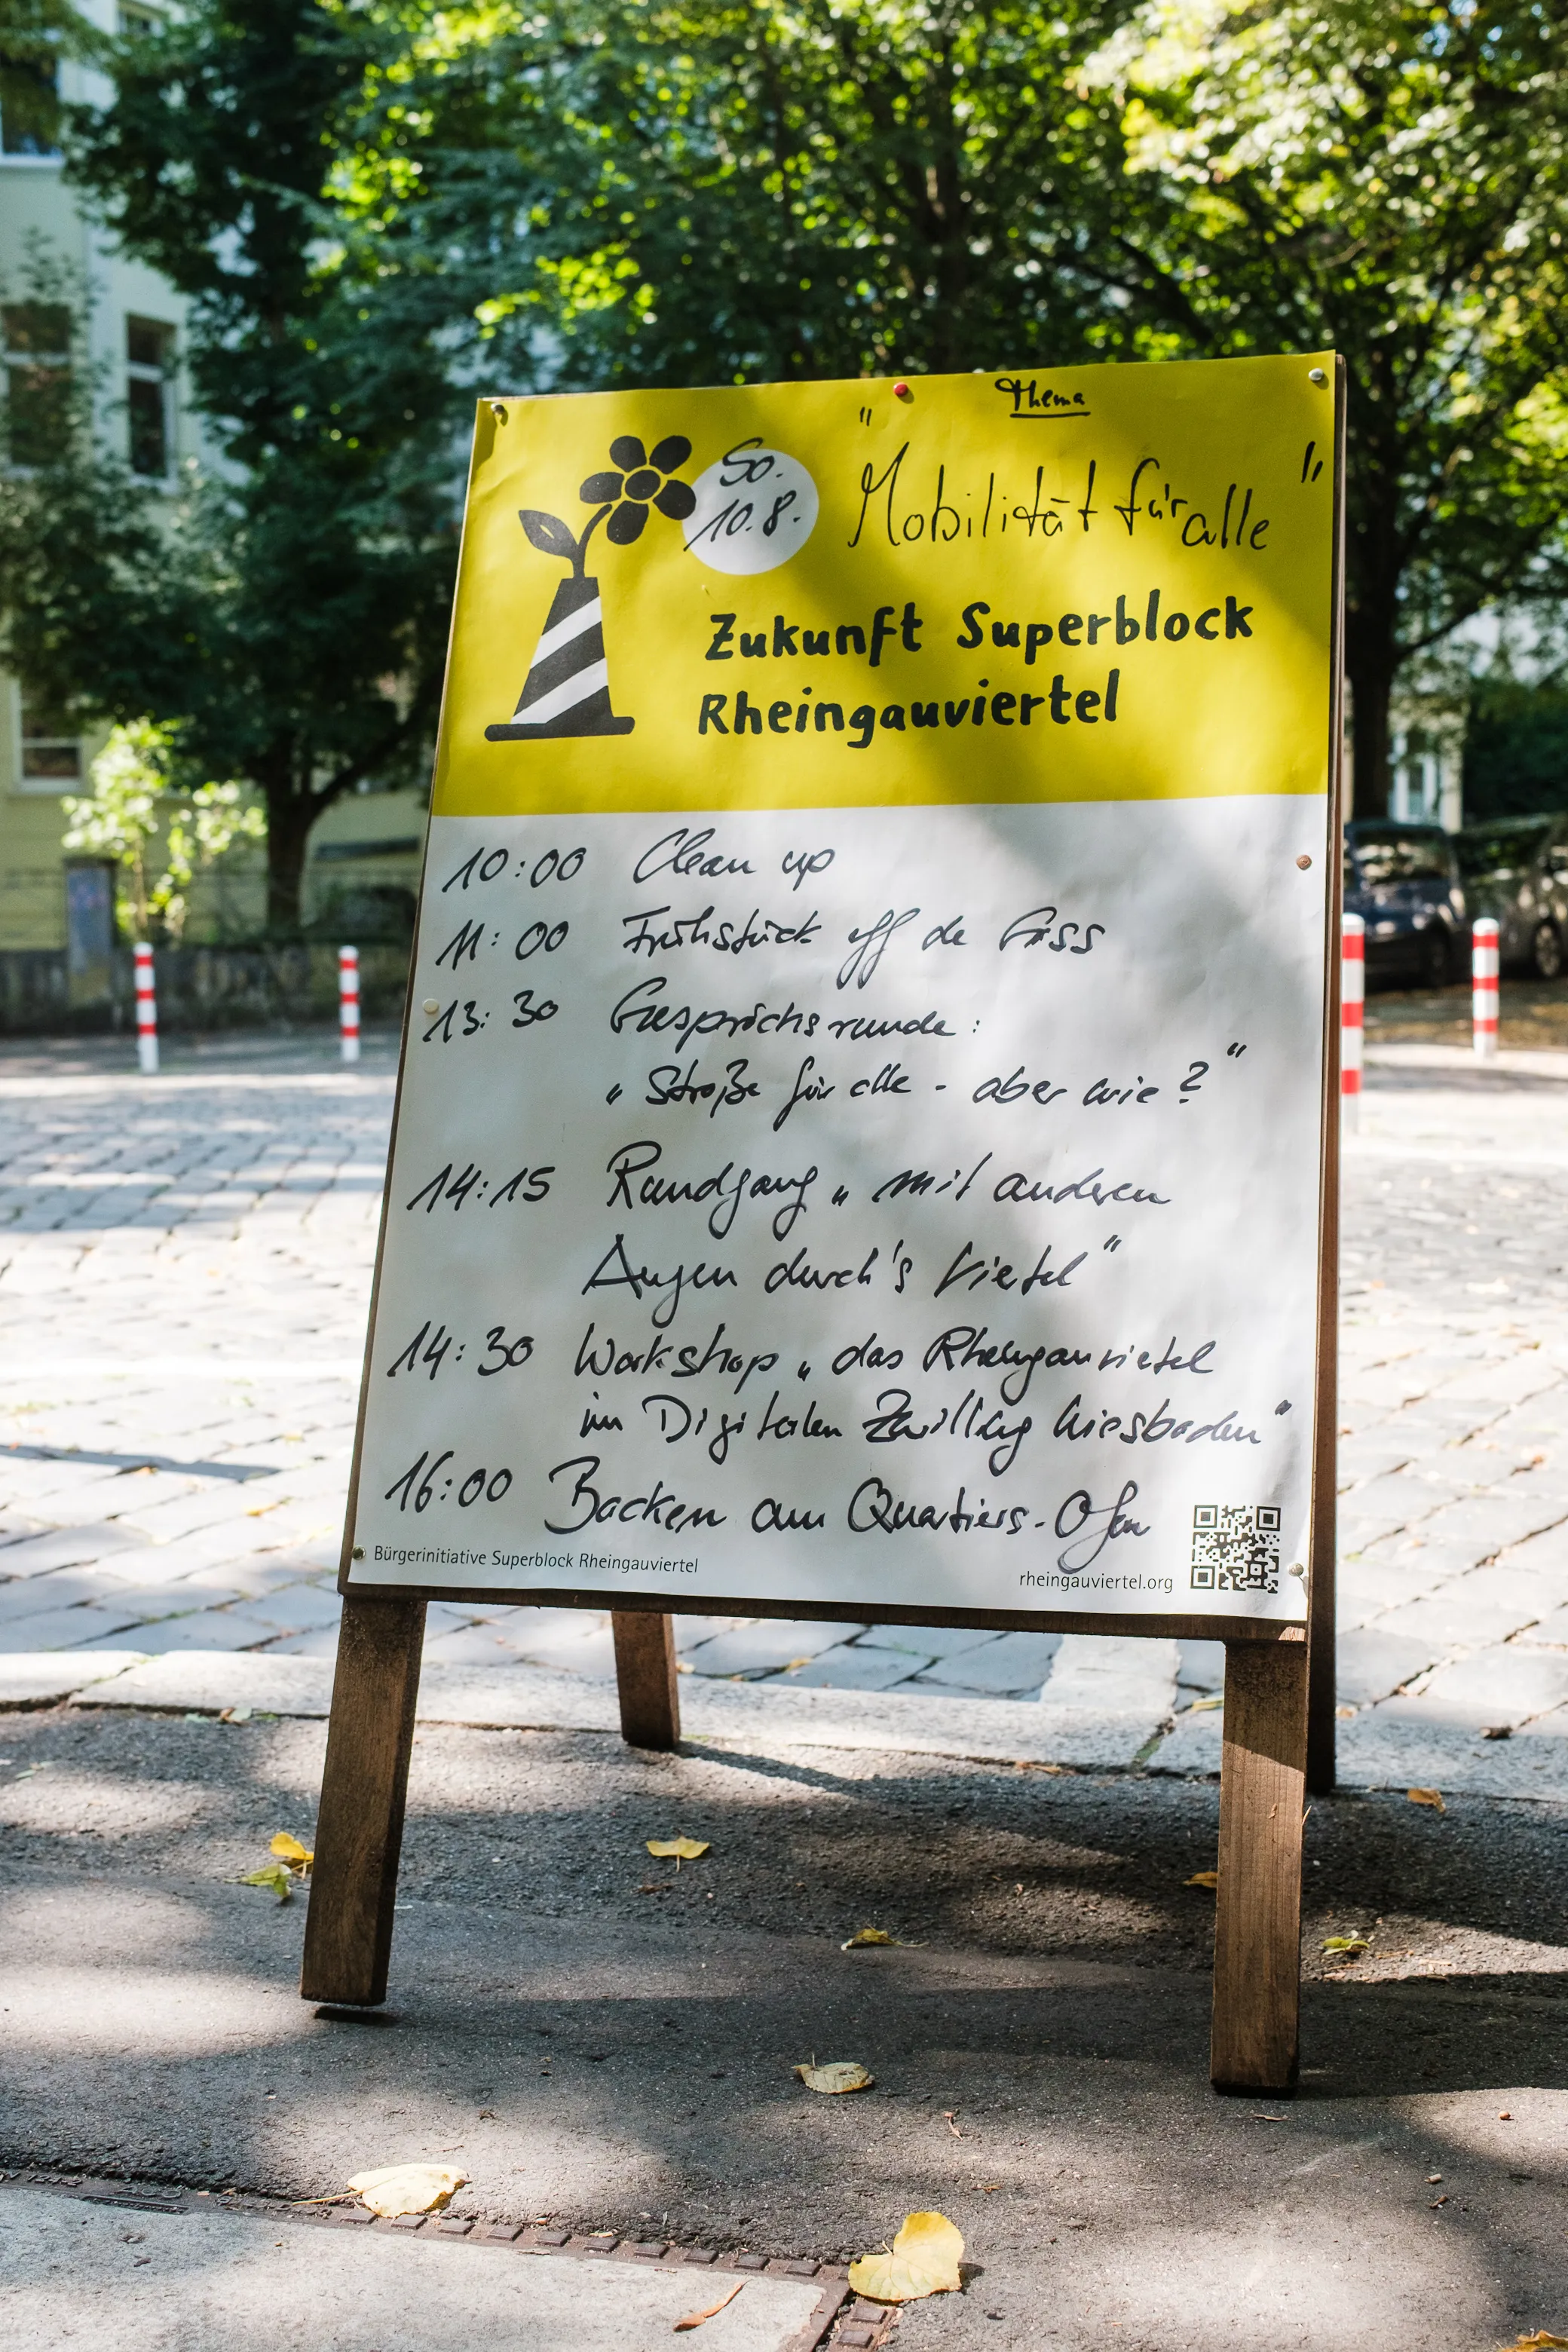 Thema
So.
10.8.
" "Mobilität für alle "
Zukunft Superblock
Rheingauviertel
10:00 Clean up
11:00 Frühstück uff de Gass
13:30 Gesprächsrunde:
„Straße für alle - aber wie?“
14:15 Rundgang „mit anderen
Augen durch's Viertel“
14:30 Workshop „das Rheingauviertel
im Digitalen Zwilling Wiesbaden“
16:00 Backen am Quartiers-Ofen
Bürgerinitiative Superblock Rheingauviertel
rheingauviertel.org